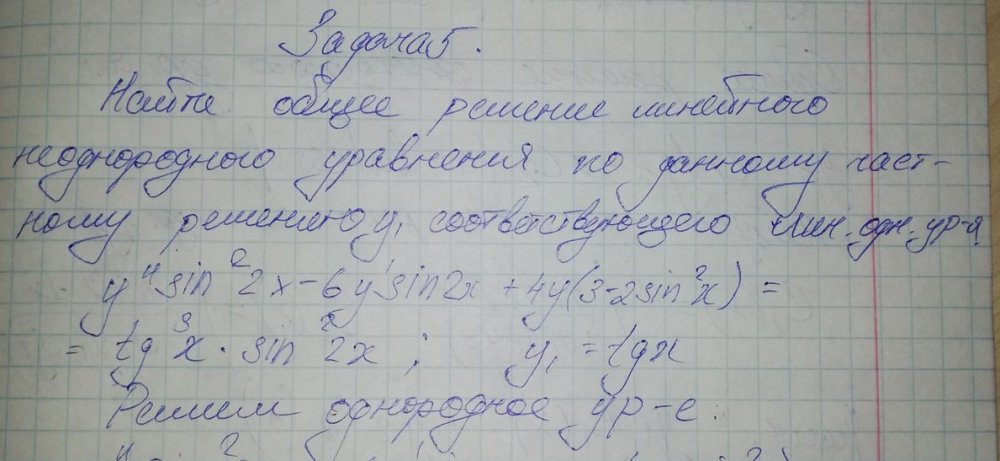 Задача 5.
Найти общее решение линейного
неоднородного уравнения по данному част-
ному решению y₁ соответствующего лин. одн. ур-я
y'' sin²2x - 6y' sin2x + 4y(3-2sin²x) =
= tg³x · sin²2x ; y₁ = tgx
Решим однородное ур-е: